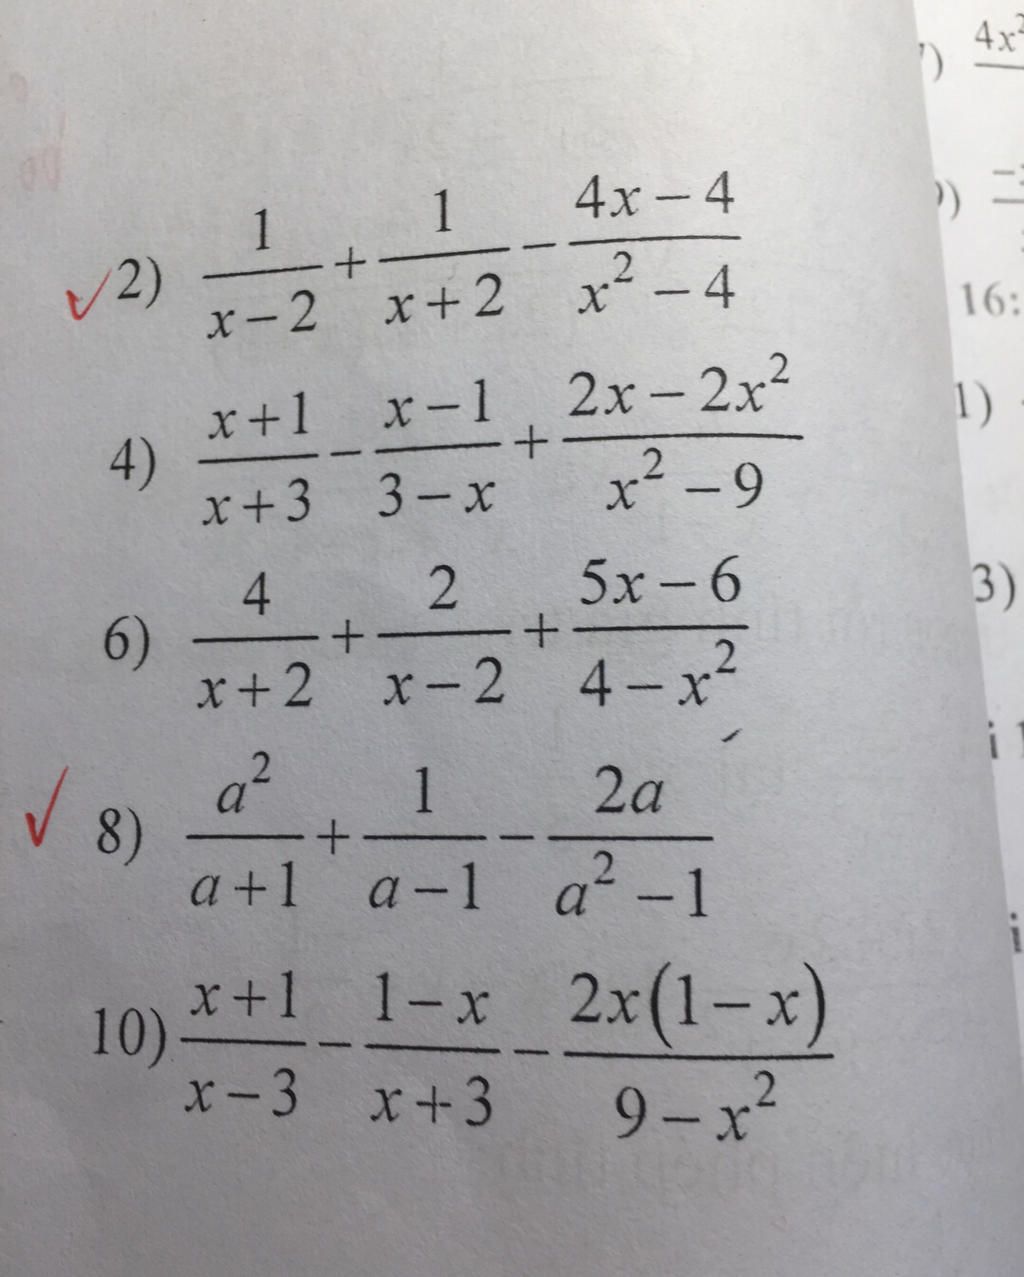 2) \frac{1}{x-2} + \frac{1}{x+2} - \frac{4x-4}{x^2-4}
4) \frac{x+1}{x+3} - \frac{x-1}{3-x} + \frac{2x-2x^2}{x^2-9}
6) \frac{4}{x+2} + \frac{2}{x-2} + \frac{5x-6}{4-x^2}
8) \frac{a^2}{a+1} + \frac{1}{a-1} - \frac{2a}{a^2-1}
10) \frac{x+1}{x-3} - \frac{1-x}{x+3} - \frac{2x(1-x)}{9-x^2}
4x²
16:
1)
3)